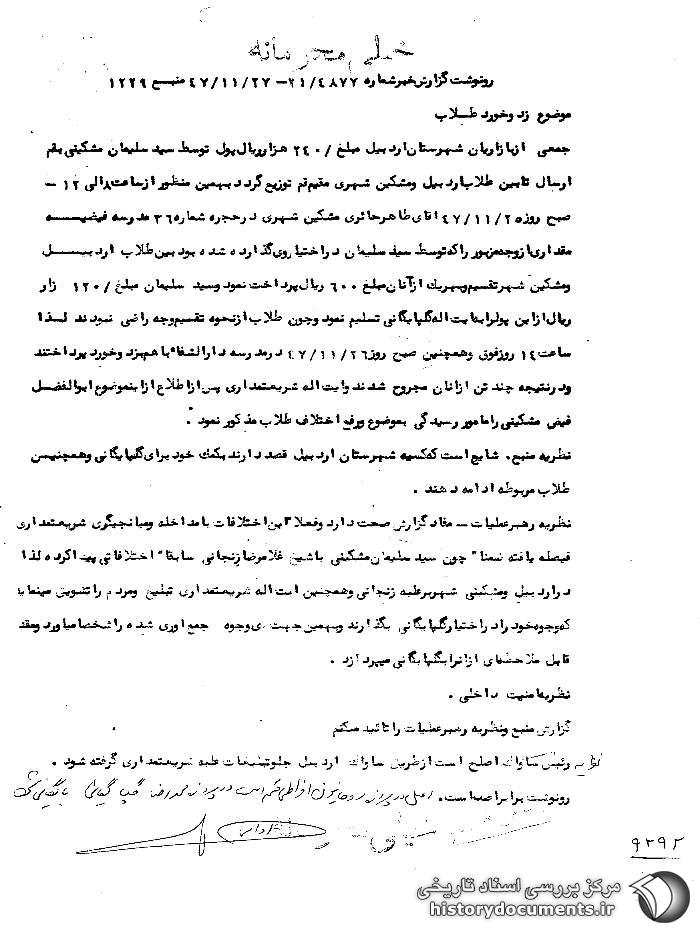 خیلی محرمانه
رونوشت گزارش خبر شماره ۲۱/۴۸۷۷ – ۴۷/۱۱/۲۷ منبع ۱۲۲۹
موضوع زد و خورد طلاب
جمعی از بازاریان شهرستان اردبیل مبلغ /۲۴۰ هزار ریال پول توسط سید سلیمان مشکینی بقم
ارسال تابین طلاب اردبیل ومشکین شهری مقیم قم توزیع گردد بهمین منظور از ساعت ۸ الی ۱۲ –
صبح روز ۴۷/۱۱/۲۵ اقای طاهر حائری مشکین شهری در حجره شماره ۳۶ مدرسه فیضیه
مقداری از وجه مزبور را که توسط سید سلیمان در اختیار وی گذارده شده بود بین طلاب اردبیل
ومشکین شهر تقسیم وبهریک از آنان مبلغ ۶۰۰ ریال پرداخت نمود وسید سلیمان مبلغ /۱۲۰ زار
ریال از این پول را بایت اله گلپایگانی تسلیم نمود وچون طلاب از نحوه تقسیم وجه راضی نبودند لذا
ساعت ۱۴ روز فوق وهمچنین صبح روز ۴۷/۱۱/۲۶ در مدرسه دارالشفاء باهم بزد وخورد پرداختند
ودر نتیجه چند تن از انان مجروح شدند وایت اله شریعتمداری پس از اطلاع از اینموضوع ابوالفضل
فیض مشکینی را مامور رسیدگی بموضوع ورفع اختلاف طلاب مذکور نمود .
نظریه منبع. شایع است که کسبه شهرستان اردبیل قصد دارند بکمک خود برای گلپایگانی وهمچنین
طلاب مربوطه ادامه دهند .
نظریه رهبر عملیات – مفاد گزارش صحت دارد وفعلا" این اختلافات با مداخله ومیانجیگری شریعتمداری
فیصله یافته ضمنا" چون سید سلیمان مشکینی با شیخ غلامرضا زنجانی سابقا" اختلافاتی پیدا کرده لذا
در اردبیل ومشکین شهر برعلیه زنجانی وهمچنین ایت اله شریعتمداری تبلیغ ومردم را تشویق مینماید
که وجوه خود را در اختیار گلپایگانی بگذارند وبهمین جهت وجوه جمع اوری شده را شخصا میاورد ومقد
قابل ملاحظه‌ای از انرا بگلپایگانی میپردازد .
نظریه امنیت داخلی .
گزارش منبع ونظریه رهبر عملیات را تائید میکنم
نظریه رئیس ساواک اصلح است از طریق ساواک اردبیل جلو تبلیغات علیه شریعتمداری گرفته شود .
رونوشت برابر اصل است. اصل در پرونده روحانیون افراطی قم است در پرونده محمد رضا گلپایگانی بایگانی شود
۹۲۹۲
مرکز بررسی اسناد تاریخی
historydocuments.ir